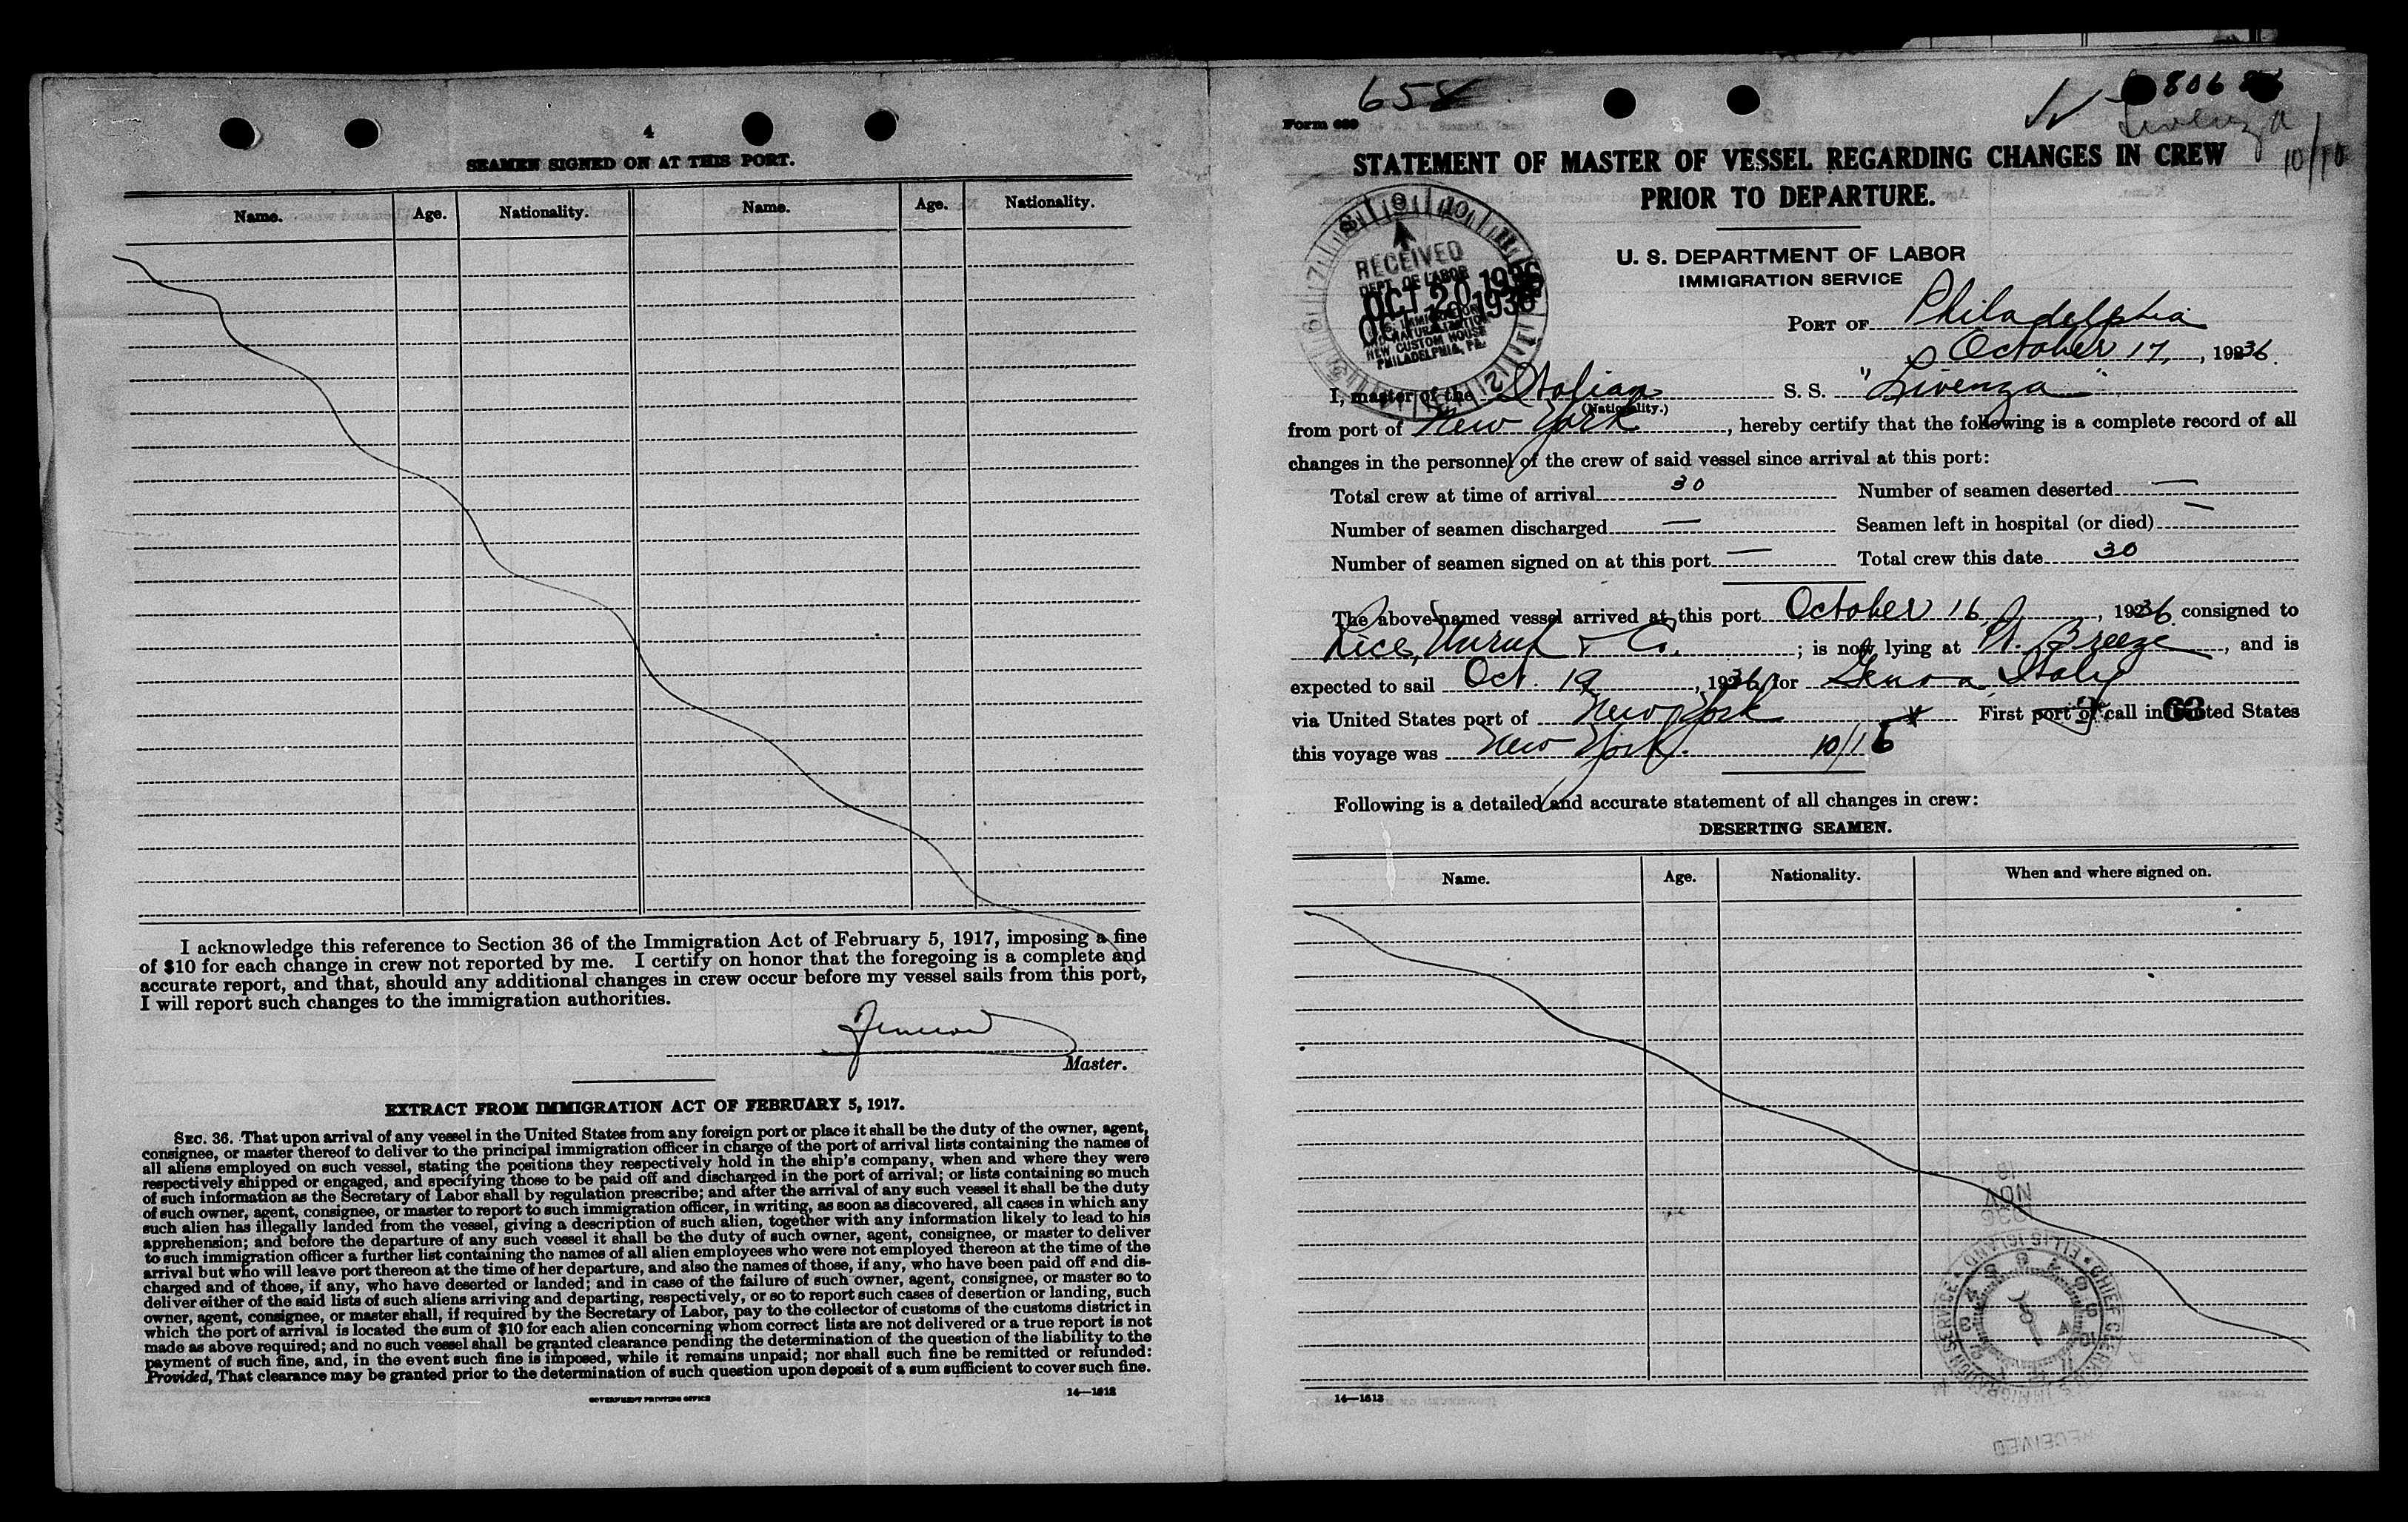 4
SEAMEN SIGNED ON AT THIS PORT.
Name. Age. Nationality. Name. Age. Nationality.
I acknowledge this reference to Section 36 of the Immigration Act of February 5, 1917, imposing a fine
of $10 for each change in crew not reported by me. I certify on honor that the foregoing is a complete and
accurate report, and that, should any additional changes in crew occur before my vessel sails from this port,
I will report such changes to the immigration authorities.
Master.
EXTRACT FROM IMMIGRATION ACT OF FEBRUARY 5, 1917.
SEC. 36. That upon arrival of any vessel in the United States from any foreign port or place it shall be the duty of the owner, agent,
consignee, or master thereof to deliver to the principal immigration officer in charge of the port of arrival lists containing the names of
all aliens employed on such vessel, stating the positions they respectively hold in the ship's company, when and where they were
respectively shipped or engaged, and specifying those to be paid off and discharged in the port of arrival; or lists containing so much
of such information as the Secretary of Labor shall by regulation prescribe; and after the arrival of any such vessel it shall be the duty
of such owner, agent, consignee, or master to report to such immigration officer, in writing, as soon as discovered, all cases in which any
such alien has illegally landed from the vessel, giving a description of such alien, together with any information likely to lead to his
apprehension; and before the departure of any such vessel it shall be the duty of such owner, agent, consignee, or master to deliver
to such immigration officer a further list containing the names of all alien employees who were not employed thereon at the time of the
arrival but who will leave port thereon at the time of her departure, and also the names of those, if any, who have been paid off and dis-
charged and of those, if any, who have deserted or landed; and in case of the failure of such owner, agent, consignee, or master so to
deliver either of the said lists of such aliens arriving and departing, respectively, or so to report such cases of desertion or landing, such
owner, agent, consignee, or master shall, if required by the Secretary of Labor, pay to the collector of customs of the customs district in
which the port of arrival is located the sum of $10 for each alien concerning whom correct lists are not delivered or a true report is not
made as above required; and no such vessel shall be granted clearance pending the determination of the question of the liability to the
payment of such fine, and, in the event such fine is imposed, while it remains unpaid; nor shall such fine be remitted or refunded:
Provided, That clearance may be granted prior to the determination of such question upon deposit of a sum sufficient to cover such fine.
GOVERNMENT PRINTING OFFICE 14—1612
658
806
Livenza
10/10
Form 689
STATEMENT OF MASTER OF VESSEL REGARDING CHANGES IN CREW
PRIOR TO DEPARTURE.
U. S. DEPARTMENT OF LABOR
IMMIGRATION SERVICE
RECEIVED
DEPT. OF LABOR
OCT 20 1936
OCT 1936
U.S. IMMIGRATION
AND NATURALIZATION
NEW CUSTOM HOUSE
PHILADELPHIA, PA.
PORT OF Philadelphia
October 17, 1936.
I, master of the Italian S. S. "Livenza"
(Nationality.)
from port of New York, hereby certify that the following is a complete record of all
changes in the personnel of the crew of said vessel since arrival at this port:
Total crew at time of arrival 30 Number of seamen deserted —
Number of seamen discharged — Seamen left in hospital (or died) —
Number of seamen signed on at this port — Total crew this date 30
The above-named vessel arrived at this port October 16, 1936 consigned to
Rice, Unruh & Co. ; is now lying at Pt. Breeze, and is
expected to sail Oct. 19, 1936, for Genoa, Italy
via United States port of New York * First port of call in United States 63
this voyage was New York. 10/16
Following is a detailed and accurate statement of all changes in crew:
DESERTING SEAMEN.
Name. Age. Nationality. When and where signed on.
18
NOV
1936
14—1612
RECEIVED